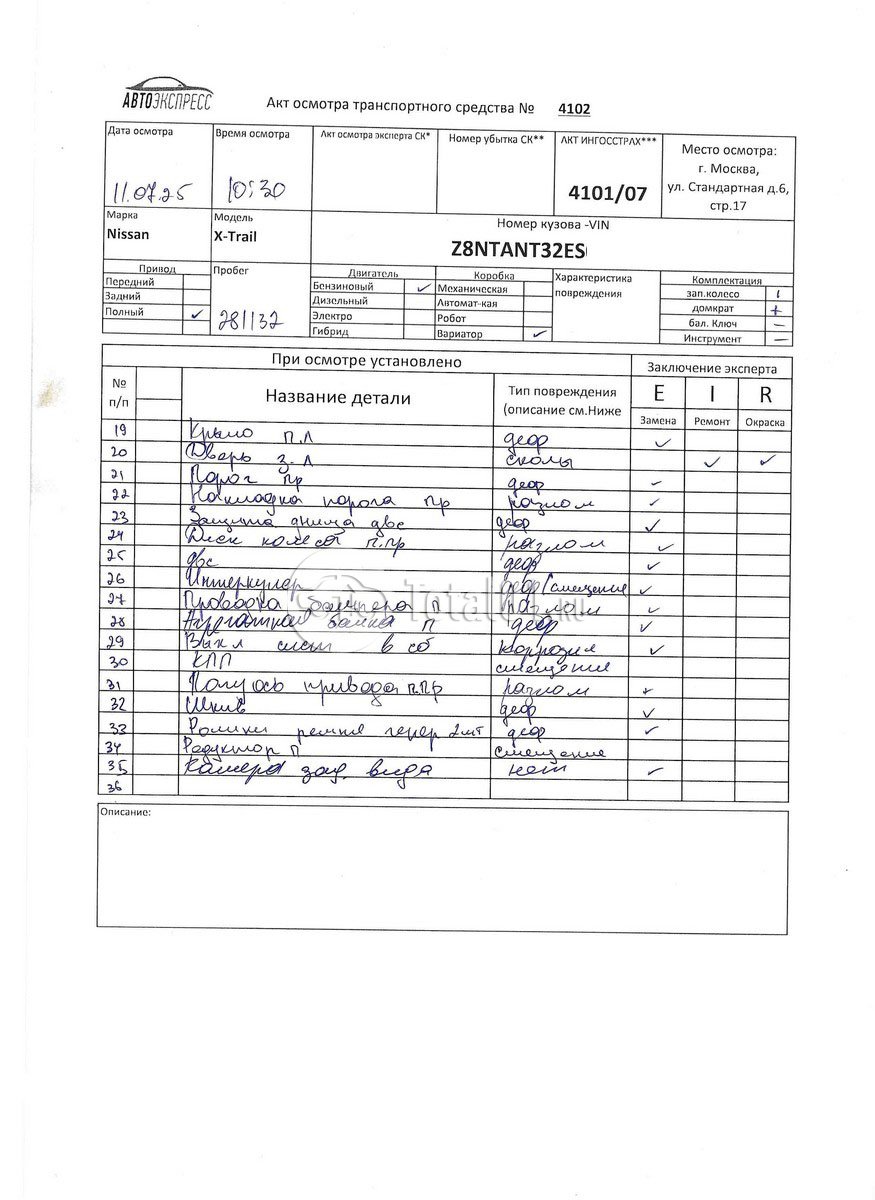 АВТОЭКСПРЕСС
Акт осмотра транспортного средства № 4102
Дата осмотра Время осмотра Акт осмотра эксперта СК* Номер убытка СК** АКТ ИНГОССТРАХ*** Место осмотра:
г. Москва,
11.07.25 10:30 4101/07 ул. Стандартная д.6,
стр.17
Марка Модель Номер кузова -VIN
Nissan X-Trail Z8NTANT32ES
Привод Пробег Двигатель Коробка Характеристика Комплектация
Передний Бензиновый ✓ Механическая повреждения зап.колесо
Задний Дизельный Автомат-кая домкрат +
Полный ✓ 281132 Электро Робот бал. Ключ –
Гибрид Вариатор ✓ Инструмент –
При осмотре установлено Заключение эксперта
№ Название детали Тип повреждения E I R
п/п (описание см.Ниже Замена Ремонт Окраска
19 Крыло п.л деф ✓
20 Дверь з.л сколы ✓ ✓
21 Порог пр деф ✓
22 Накладка порога пр разлом ✓
23 Защита днища двс деф ✓
24 Диск колеса п.пр разлом ✓
25 двс деф ✓
26 Интеркулер деф/смещение ✓
27 Проводка бампера п разлом ✓
28 Агрегатная балка п деф ✓
29 Выкл сист в сб коррозия ✓
30 КПП смещение
31 Полуось привода п.пр разлом +
32 Шкив деф ✓
33 Ролики ремня генер 2шт деф ✓
34 Редуктор п смещение
35 Камера зад. вида нет ✓
36
Описание:
TotalCar.RU